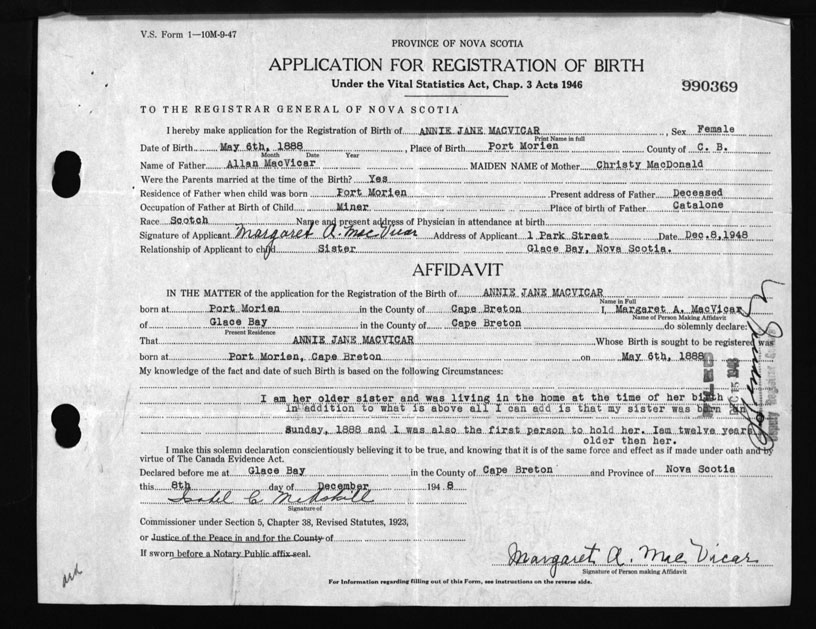 V.S. Form 1—10M-9-47
PROVINCE OF NOVA SCOTIA
APPLICATION FOR REGISTRATION OF BIRTH
Under the Vital Statistics Act, Chap. 3 Acts 1946
990369
TO THE REGISTRAR GENERAL OF NOVA SCOTIA
I hereby make application for the Registration of Birth of ANNIE JANE MACVICAR, Sex Female
Print Name in full
Date of Birth May 6th, 1888, Place of Birth Port Morien County of C. B.
Month Date Year
Name of Father Allan MacVicar MAIDEN NAME of Mother Christy MacDonald
Were the Parents married at the time of the Birth? Yes
Residence of Father when child was born Port Morien Present address of Father Deceased
Occupation of Father at Birth of Child Miner Place of birth of Father Catalone
Race Scotch Name and present address of Physician in attendance at birth
Signature of Applicant Margaret A. MacVicar Address of Applicant 1 Park Street Date Dec.8,1948
Relationship of Applicant to child Sister Glace Bay, Nova Scotia.
AFFIDAVIT
IN THE MATTER of the application for the Registration of the Birth of ANNIE JANE MACVICAR
Name in Full
born at Port Morien in the County of Cape Breton I, Margaret A. MacVicar
Name of Person Making Affidavit
of Glace Bay in the County of Cape Breton do solemnly declare:
Present Residence
That ANNIE JANE MACVICAR Whose Birth is sought to be registered was
born at Port Morien, Cape Breton on May 6th, 1888
My knowledge of the fact and date of such Birth is based on the following Circumstances:
I am her older sister and was living in the home at the time of her birth
In addition to what is above all I can add is that my sister was born
Sunday, 1888 and I was also the first person to hold her. Iam twelve years
older then her.
I make this solemn declaration conscientiously believing it to be true, and knowing that it is of the same force and effect as if made under oath and by
virtue of The Canada Evidence Act.
Declared before me at Glace Bay in the County of Cape Breton and Province of Nova Scotia
this 8th day of December 1948
Isabel C.
Signature of
Commissioner under Section 5, Chapter 38, Revised Statutes, 1923,
or Justice of the Peace in and for the County of
If sworn before a Notary Public affix seal.
Margaret A. MacVicar
Signature of Person making Affidavit
For Information regarding filling out of this Form, see instructions on the reverse side.
FILED
DEC 15 1948